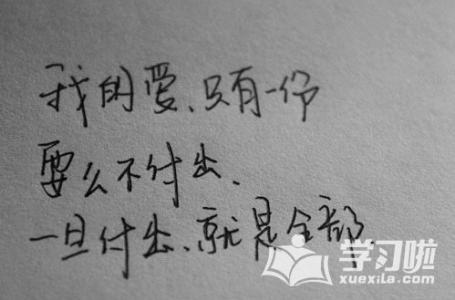 我的爱、只有一份
要么不付出、
一旦付出、就是全部、
学习啦
xuexila.com